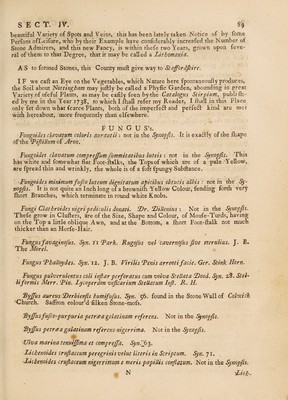 SECT. IV. 89
beautiful Variety of Spots and Veins, this has been lately taken Notice of by some
Persons of Leisure, who by their Example have considerably increased the Number of
Stone Admirers, and this new Fancy, is within these two Years, grown upon seve-
ral of them to that Degree, that it may be called a Lithomania.
AS to formed Stones, this County must give way to Staffordshire.
IF we cast an Eye on the Vegetables, which Nature here spontaneously produces,
the Soil about Nottingham may justly be called a Physic Garden, abounding in great
Variety of useful Plants, as may be easily seen by the Catalogus Stirpium, publish-
ed by me in the Year 1738, to which I shall refer my Reader, I shall in this Place
only set down what scarce Plants, both of the imperfect and perfect kind are met
with hereabout, more frequently than elsewhere.
FUNGUS's.
Fungoides clavatum coloris aurantii: not in the Synopsis. It is exactly of the shape
of the Pistillum of Aron.
Fungoides clavatum compressum summitatibus luteis: not in the Synopsis. This
has white and somewhat flat Foot-stalks, the Tops of which are of a pale Yellow,
are spread thin and wrinkly, the whole is of a soft spungy Substance.
Fungoides minimum fusco luteum dignitatum apicibus obtusis albis: not in the Sy-
nopsis. It is not quite an Inch long of a brownish Yellow Colour, sending forth very
short Branches, which terminate in round white Knobs.
Fungi Clathroides nigri pediculis donati. Dr. Dillenius: Not in the Synopsis.
These grow in Clusters, are of the Size, Shape and Colour, of Mouse-Turds, having
on the Top a little oblique Awn, and at the Bottom, a short Foot-stalk not much
thicker than an Horse-Hair.
Fungus favaginosus. Syn. 11 Park. Rugosus vel cavernosus sive merulius. J. B.
The Morel.
Fungus Phalloydes. Syn. 12. J. B. Virilis Penis arrecti facie. Ger. Stink Horn.
Fungus pulverulentus coli instar perforatus cum volva Stellata Dood. Syn. 28. Stel-
liformis Merr. Pin. Lycoperdon vesicarium Stellatum Inst. R. H.
Byssus aureus Derbiensis humifusus. Syn. 56. found in the Stone Wall of Colwick
Church. Saffron colour'd silken Stone-moss.
Byssus fusco-purpuria petræa gelatinam referens. Not in the Synopsis.
Byssus petræa gelatinam referens nigerrima. Not in the Synopsis.
Ulva marina tenuissima et compressa. Syn. 63.
Lichenoides crustaceum peregrinis velut literis in Scriptum. Syn. 71.
Lichenoides crustaceum nigerrimum e meris papillis constatum. Not in the Synopsis.
N Lich-